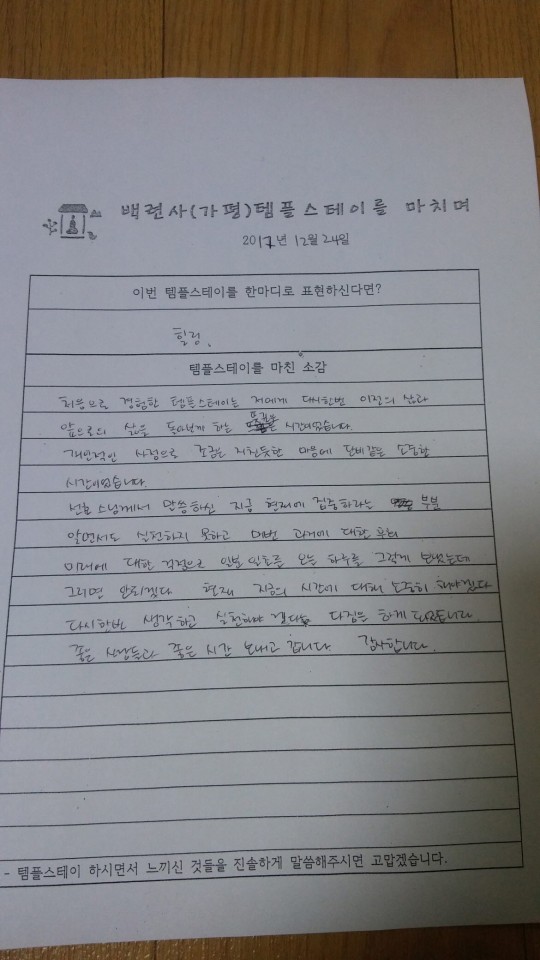 백련사(가평)템플스테이를 마치며
2017년 12월 24일
이번 템플스테이를 한마디로 표현하신다면?
힐링.
템플스테이를 마친 소감
처음으로 경험한 템플스테이는 저에게 다시한번 이전의 삶과
앞으로의 삶을 돌아보게 하는 뜻깊은 시간이었습니다.
개인적인 사정으로 조금은 지친듯한 마음에 단비같은 소중한
시간이었습니다.
선효 스님께서 말씀하신 지금 현재에 집중하라는 부분
알면서도 실천하지 못하고 매번 과거에 대한 후회
미래에 대한 걱정으로 일분 일초를 오늘 하루를 그렇게 보냈는데
그러면 안되겠다 현재 지금의 시간에 대해 소중히 해야겠다
다시한번 생각하고 실천해야 겠다는 다짐을 하게 되었습니다.
좋은 사람들과 좋은 시간 보내고 갑니다. 감사합니다.
- 템플스테이 하시면서 느끼신 것들을 진솔하게 말씀해주시면 고맙겠습니다.